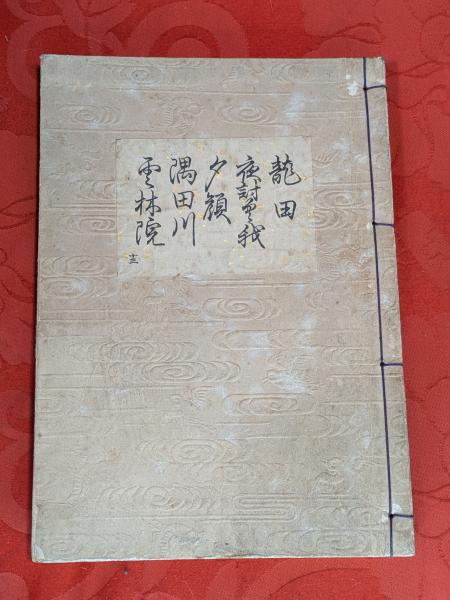 龍田
夜討曽我
夕顔
隅田川
雲林院
十三